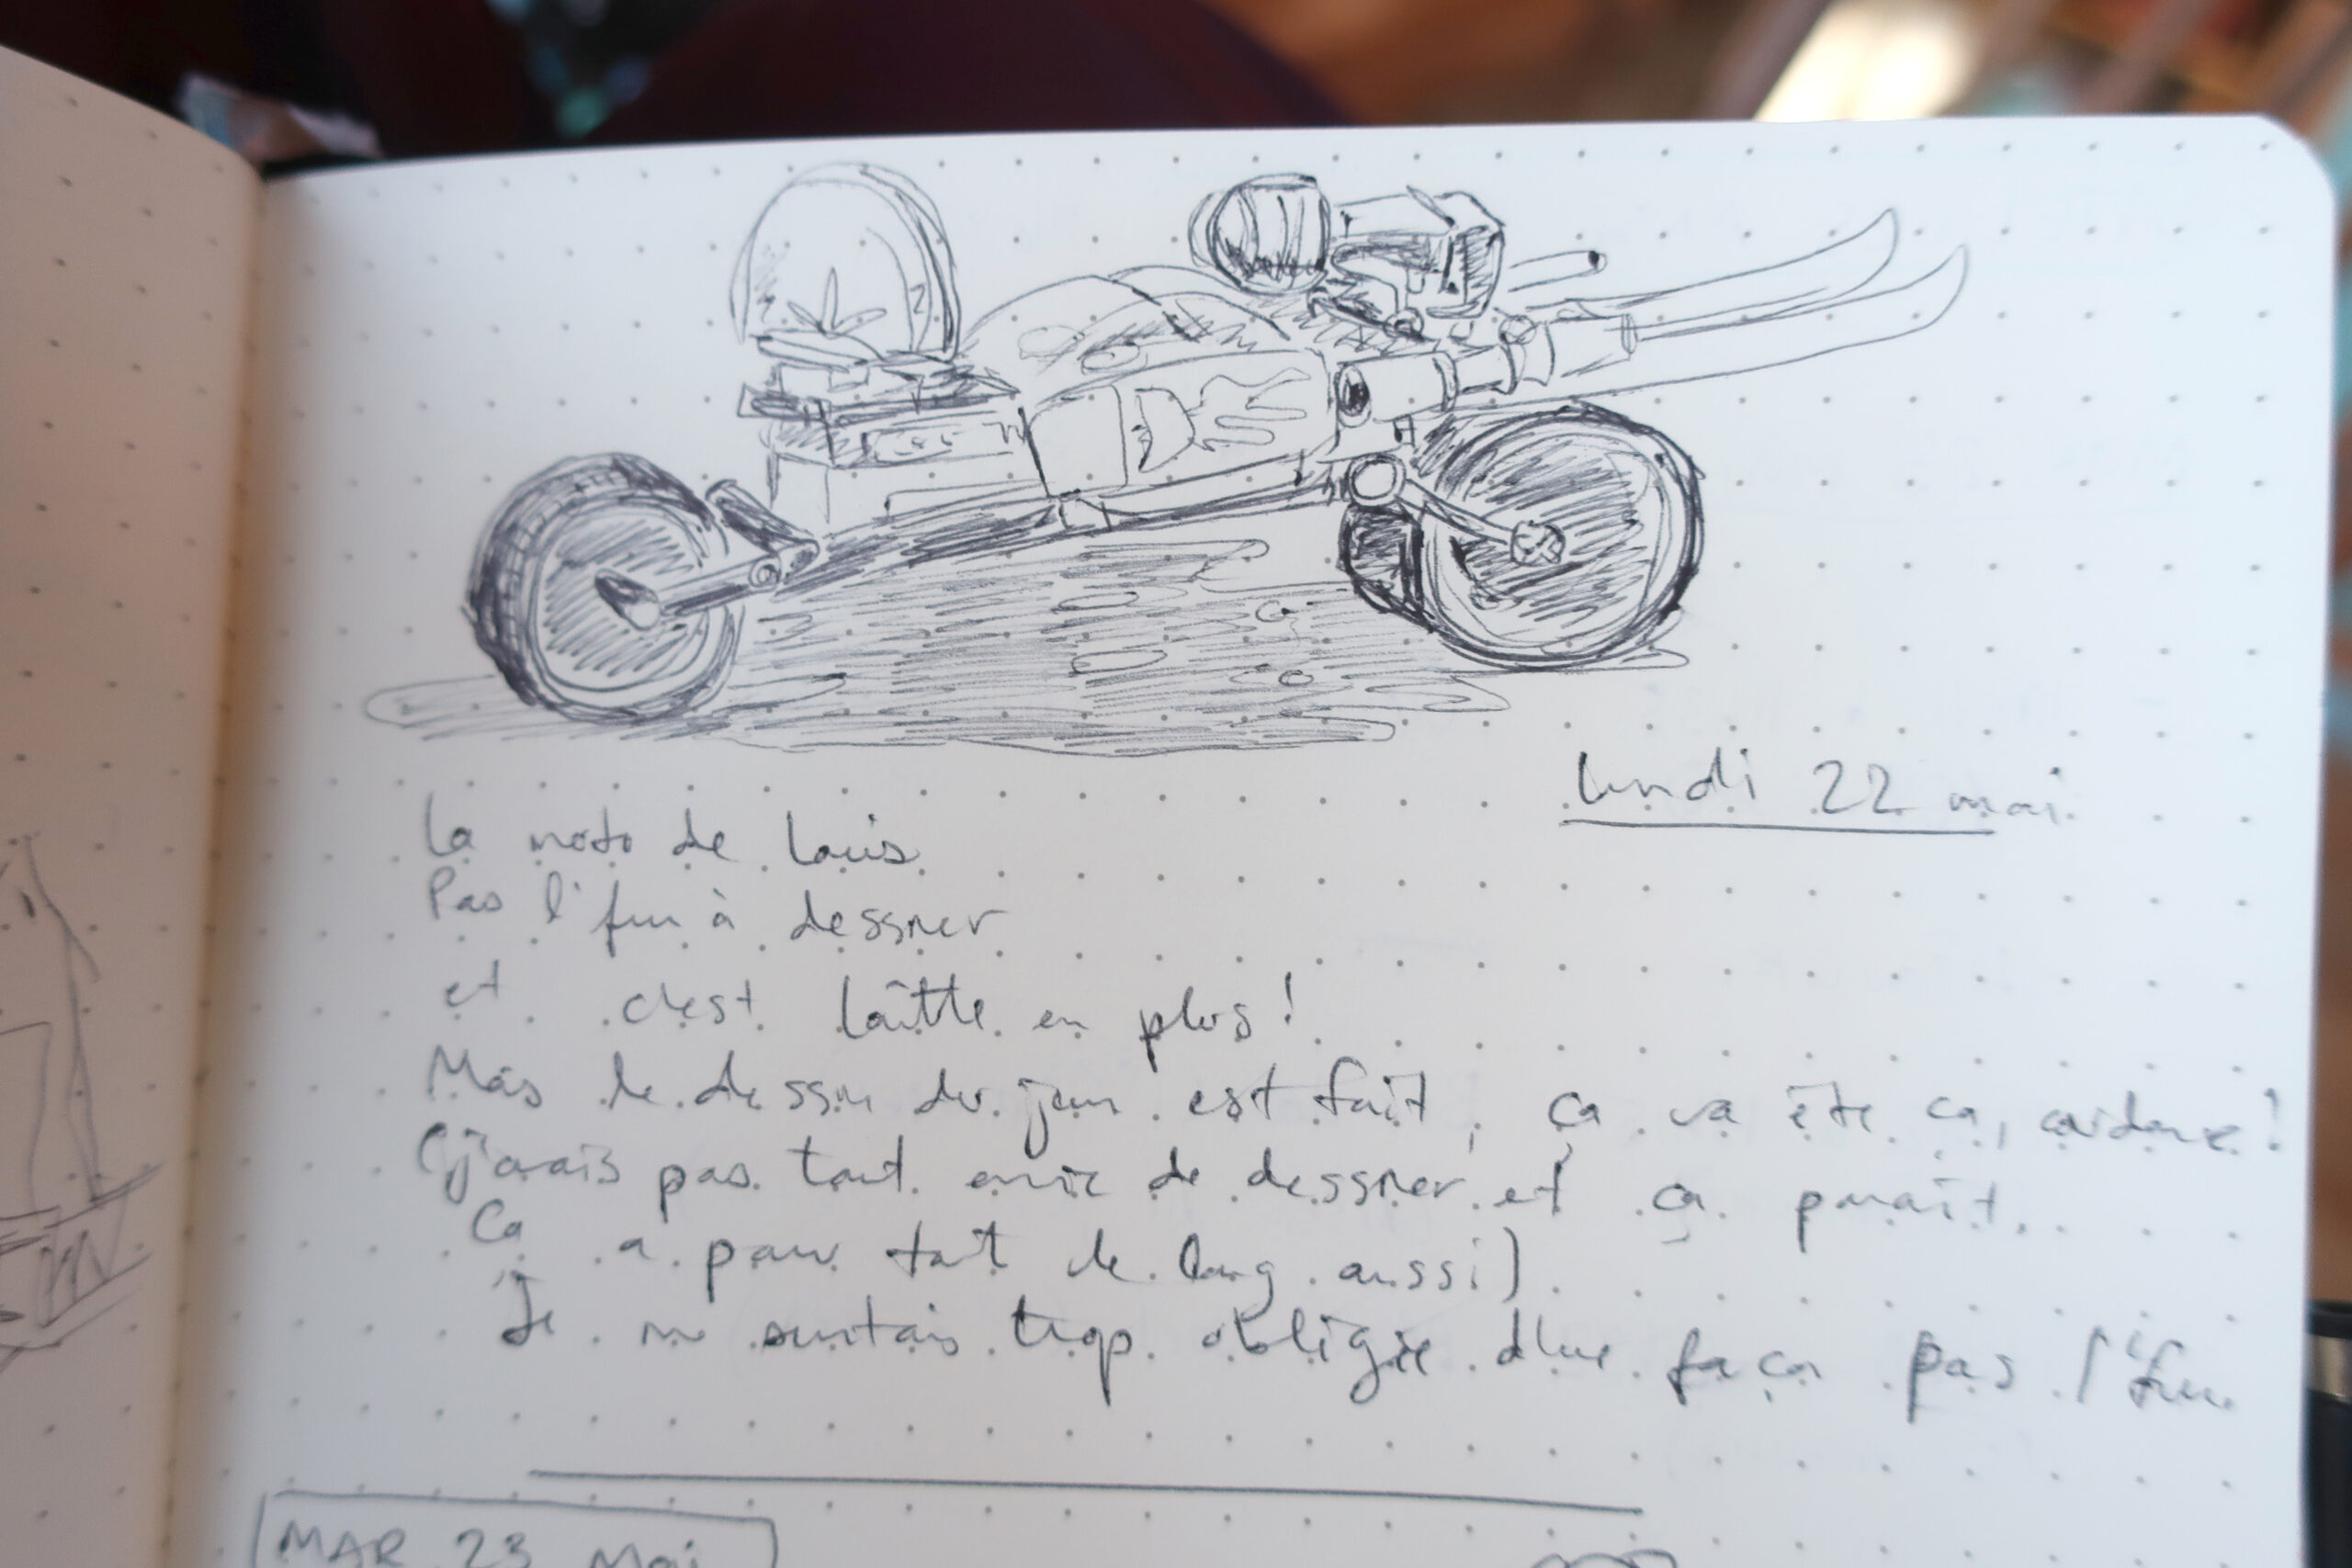 lundi 22 mai
La moto de Louis
Pas l'fun à dessiner
et c'est laitte en plus!
Mais le dessin du jour est fait, ça va être ça,
(j'avais pas tant envie de dessiner et ça parait.
Ça a pour tait de long aussi)
Je me sentais trop obligée d'une façon pas l'fun
MAR 23 Mai